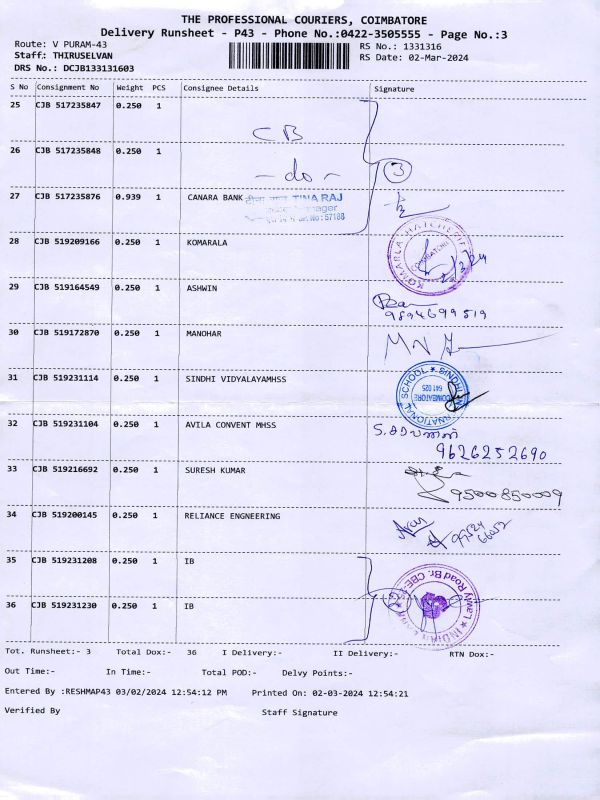 THE PROFESSIONAL COURIERS, COIMBATORE
Delivery Runsheet - P43 - Phone No.:0422-3505555 - Page No.:3
Route: V PURAM-43
RS No.: 1331316
Staff.: THIRUSELVAN
RS Date: 02-Mar-2024
DRS No.: DCJB133131603
S No Consignment No Weight PCS Consignee Details Signature
25 CJB 517235847 0.250 1
CB
26 CJB 517235848 0.250 1
- do - 3
27 CJB 517235876 0.939 1 CANARA BANK
TINA RAJ
28 CJB 519209166 0.250 1 KOMARALA
COIMBATORE
29 CJB 519164549 0.250 1 ASHWIN
9894699519
30 CJB 519172870 0.250 1 MANOHAR
31 CJB 519231114 0.250 1 SINDHI VIDYALAYAMHSS
COIMBATORE
641 025
32 CJB 519231104 0.250 1 AVILA CONVENT MHSS
9626252690
33 CJB 519216692 0.250 1 SURESH KUMAR
9500850009
34 CJB 519200145 0.250 1 RELIANCE ENGNEERING
35 CJB 519231208 0.250 1 IB
36 CJB 519231230 0.250 1 IB
Lawly Road Br. CBE
Tot. Runsheet:- 3 Total Dox:- 36 I Delivery:- II Delivery:- RTN Dox:-
Out Time:- In Time:- Total POD:- Delvy Points:-
Entered By :RESHMAP43 03/02/2024 12:54:12 PM Printed On: 02-03-2024 12:54:21
Verified By Staff Signature